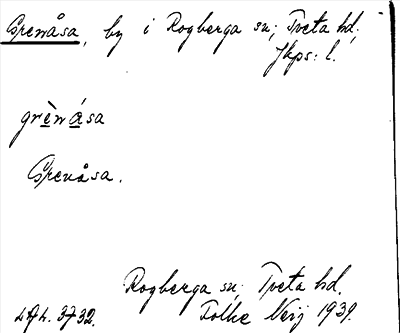 Grenåsa, by i Rogberga sn; Tveta hd.
Jkps: l.
grènása
Grenåsa.
Rogberga sn; Tveta hd.
Folke 1939.